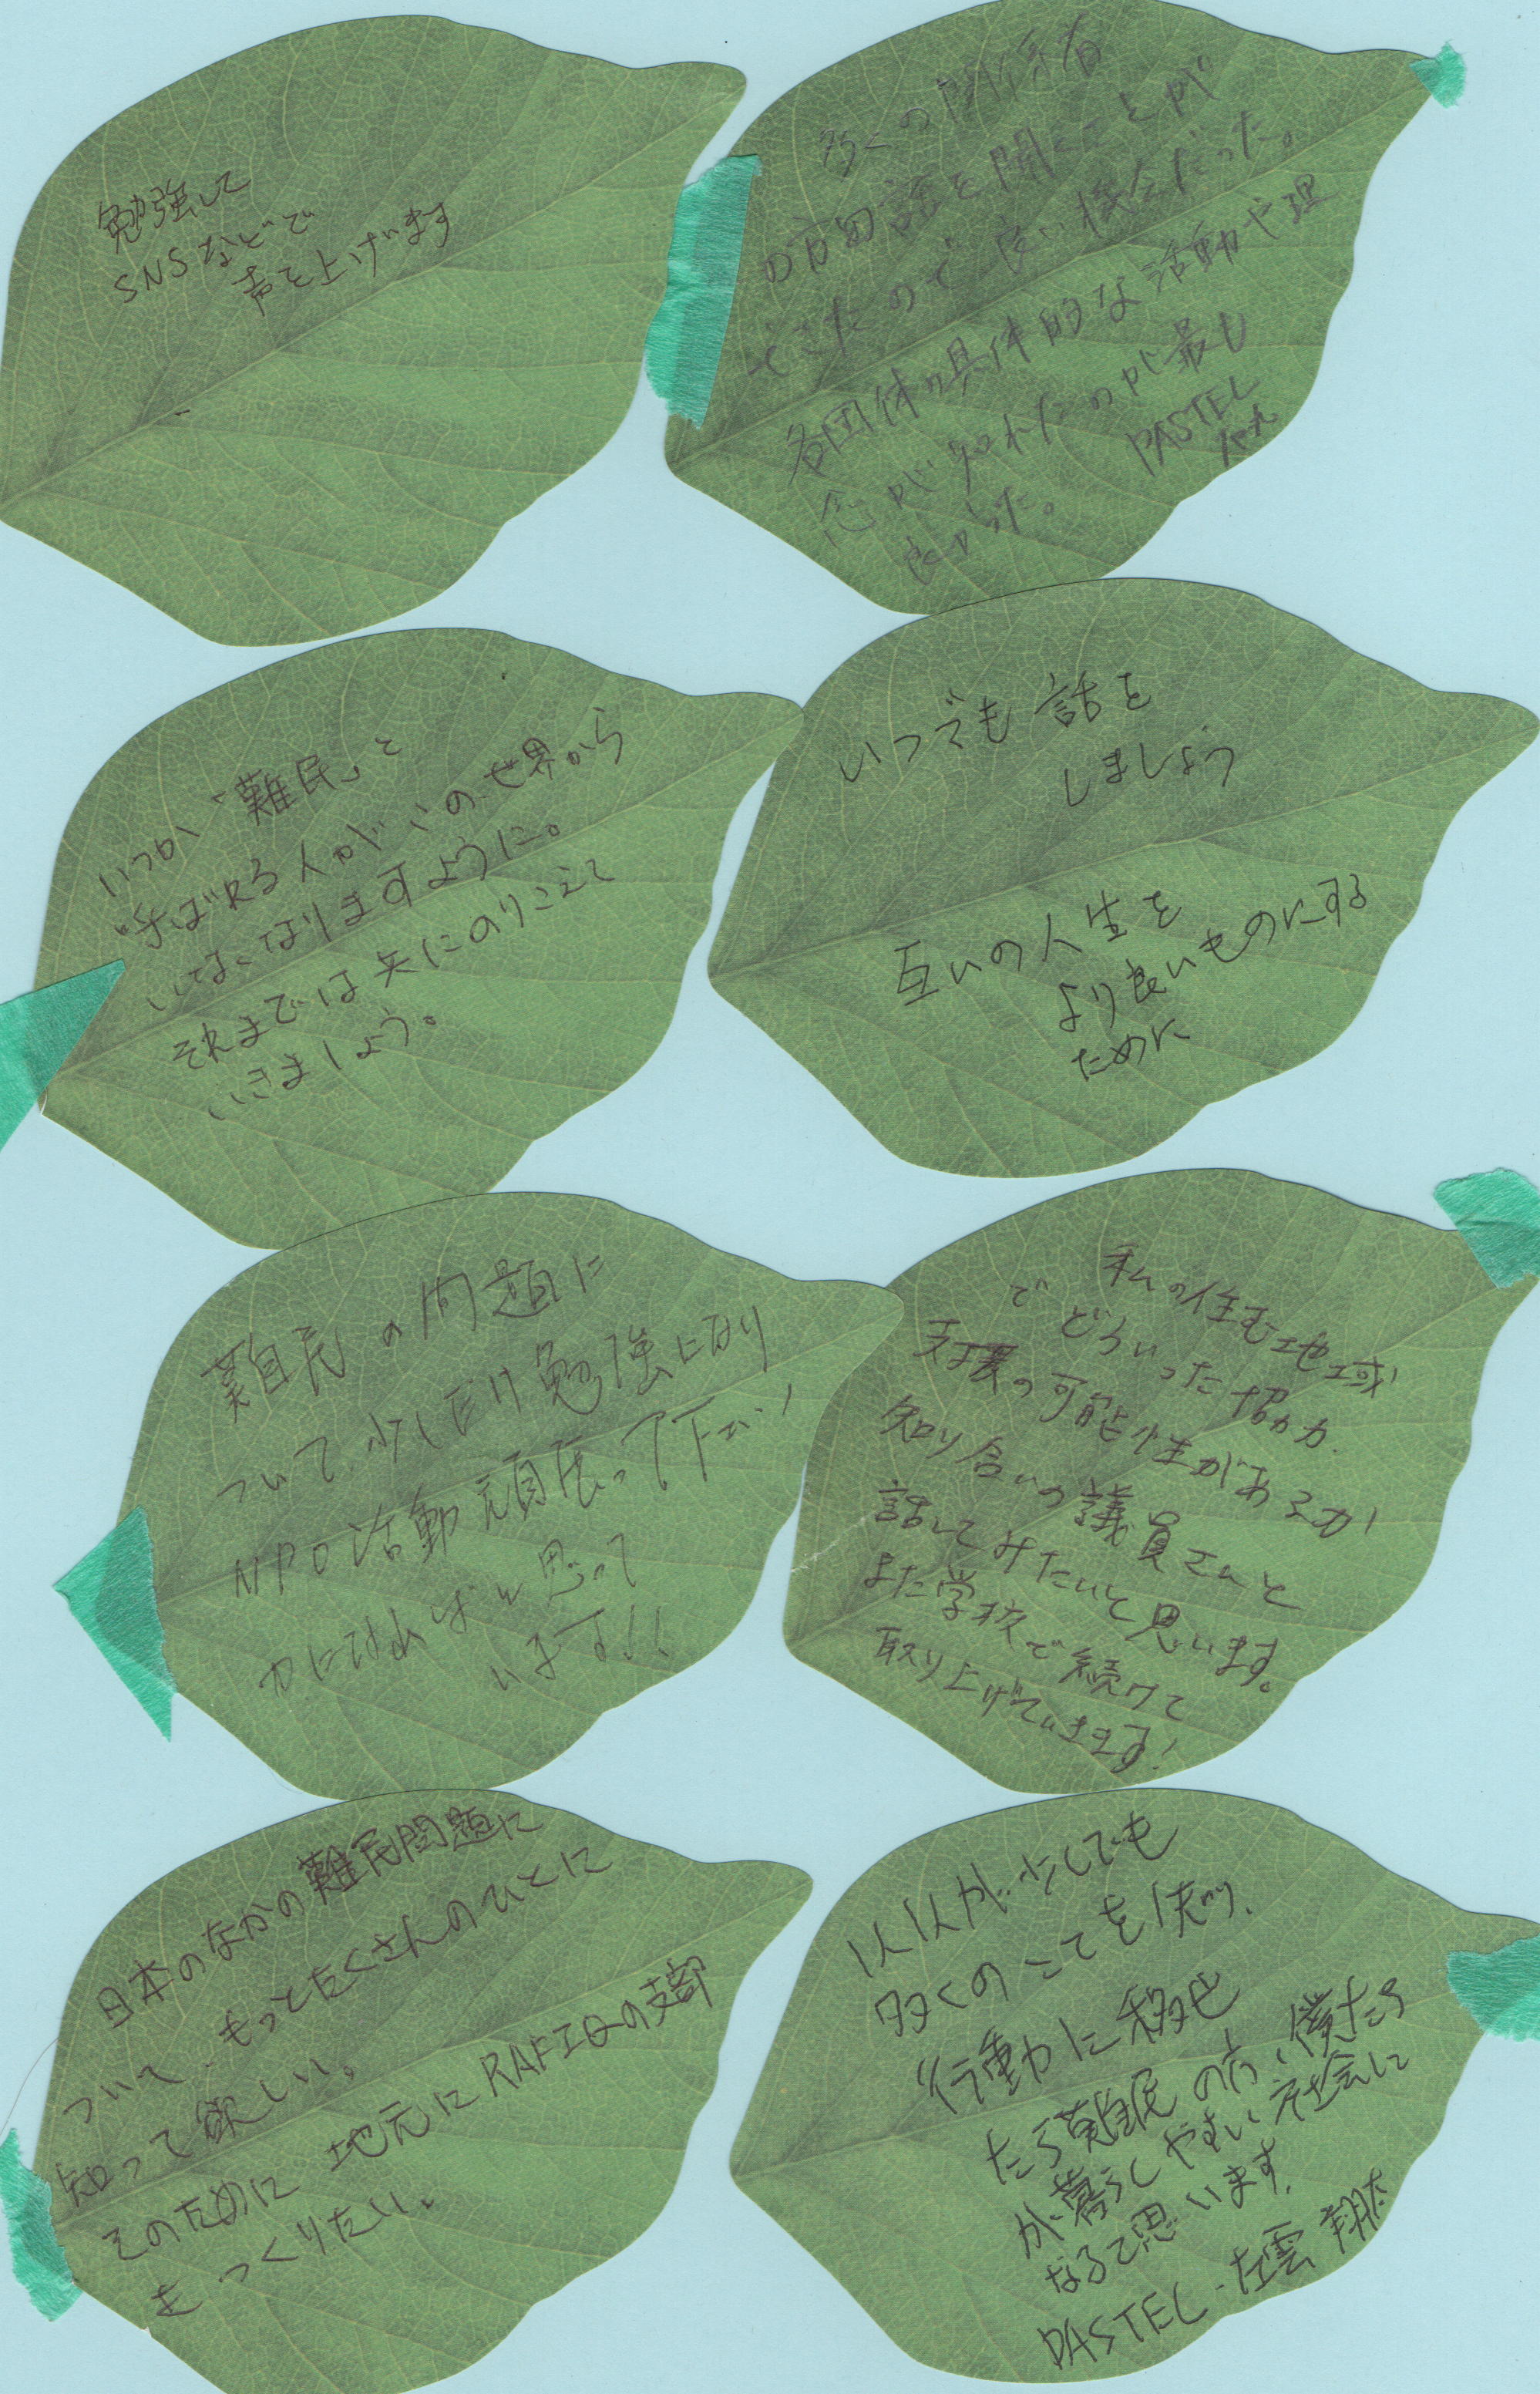 勉強して
SNSなどで
声を上げます
多くの関係者
の方のお話を聞くことが
できたので良い機会だった。
各団体の具体的な活動や理
念が知れたのが最も
良かった。
PASTEL
いつか「難民」と
呼ばれる人がこの世界から
いなくなりますように。
それまでは共にのりこえて
いきましょう。
いつでも話を
しましょう
互いの人生を
より良いものにする
ために
難民の問題に
ついて、少しだけ勉強になり
NPO活動頑張って下さい!
力になればと思って
います!!
私の住む地域
でどういった協力
支援の可能性があるか
知り合いの議員さんと
話してみたいと思います。
また学校で続けて
取り上げていきます!
日本のなかの難民問題に
ついて、もっとたくさんのひとに
知って欲しい。
そのために地元にRAFIQの支部
をつくりたい。
1人1人が少しでも
多くのことを知り、
行動に移せ
たら難民の方、僕たち
が暮らしやすい社会に
なると思います。
PASTEL・左雲 翔太